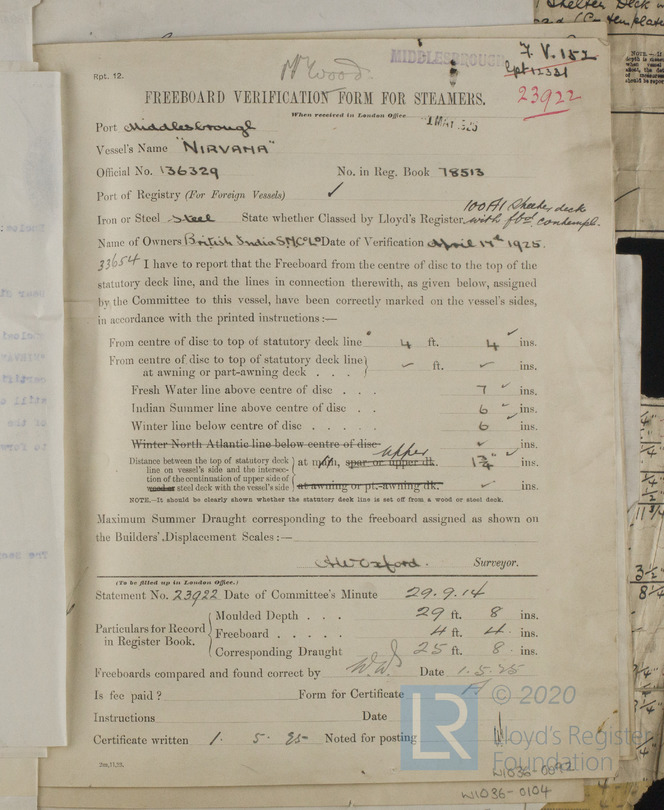 Shelter Deck
Rpt. 12.
Mr Wood.
MIDDLESBROUGH
F. V. 152
Rpt 12331
23922
FREEBOARD VERIFICATION FORM FOR STEAMERS.
When received in London Office
1 MAY 1925
Port Middlesbrough
Vessel's Name "NIRVANA"
Official No. 136329 No. in Reg. Book 78513
Port of Registry (For Foreign Vessels) ✓
Iron or Steel Steel State whether Classed by Lloyd's Register 100A1 Shelter deck with fbd contempl.
Name of Owners British India S.N.Co Ld Date of Verification April 17th 1925.
33654 I have to report that the Freeboard from the centre of disc to the top of the
statutory deck line, and the lines in connection therewith, as given below, assigned
by the Committee to this vessel, have been correctly marked on the vessel's sides,
in accordance with the printed instructions:—
From centre of disc to top of statutory deck line 4 ft. 4 ✓ ins.
From centre of disc to top of statutory deck line
at awning or part-awning deck . . . ✓ ft. ✓ ins.
Fresh Water line above centre of disc . . . 7 ✓ ins.
Indian Summer line above centre of disc . . 6 ✓ ins.
Winter line below centre of disc . . . . . 6 ✓ ins.
Winter North Atlantic line below centre of disc ✓ ins.
Distance between the top of statutory deck
line on vessel's side and the intersec-
tion of the continuation of upper side of
wood or steel deck with the vessel's side
at main, spar or upper dk. upper 1 3/4" ✓ ins.
at awning or pt.-awning dk. ✓ ins.
NOTE.—It should be clearly shown whether the statutory deck line is set off from a wood or steel deck.
Maximum Summer Draught corresponding to the freeboard assigned as shown on
the Builders' Displacement Scales:—
AW Oxford. Surveyor.
(To be filled up in London Office.)
Statement No. 23922 Date of Committee's Minute 29.9.14
Particulars for Record
in Register Book.
Moulded Depth . . . 29 ft. 8 ins.
Freeboard . . . . . 4 ft. 4. ins.
Corresponding Draught 25 ft. 8. ins.
Freeboards compared and found correct by Date 1.5.25
Is fee paid? Form for Certificate
Instructions Date
Certificate written 1. 5. 25 Noted for posting
2m,11,23.
LR © 2020
Lloyd's Register
Foundation
W1036-0092
W1036-0104
11 3/4
3 1/2"
8 1/4